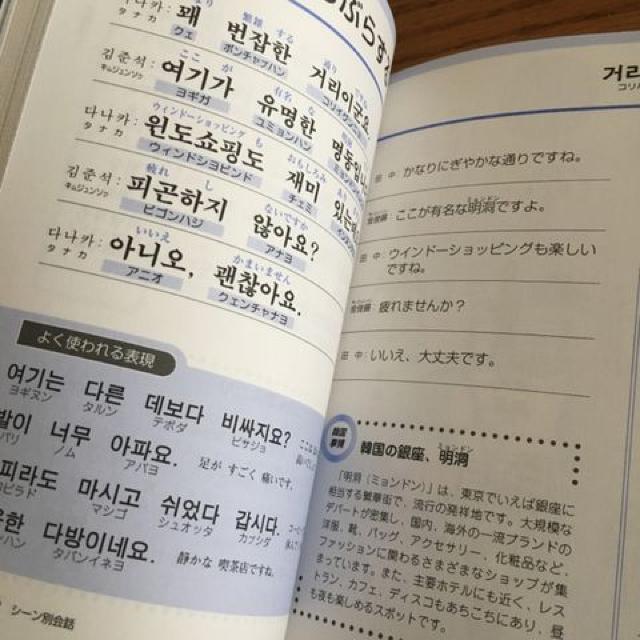 ぶらする
다나카:
タナカ
꽤 번잡한 거리이군요
クェ ボンチャプハン
ここ が 有名 な
김준석:
キムジュンソク
여기가 유명한
ヨギガ ユミョンハン
ウィンドーショッピング も おもしろ
다나카:
タナカ
윈도쇼핑도 재미
ウィンドショピンド チェミ
疲れ し ないですか
김준석:
キムジュンソク
피곤하지 않아요?
ピゴンハジ アナヨ
いいえ かまいません
다나카:
タナカ
아니오, 괜찮아요.
アニオ クェンチャナヨ
よく使われる表現
여기는 다른 데보다 비싸지요?
ヨギヌン タルン テボダ ピサジョ
발이 너무 아파요. 足が すごく 痛いです。
パリ ノム アパヨ
피라도 마시고 쉬었다 갑시다.
ピラド マシゴ シュオッタ カプシダ
한 다방이네요. 静かな 喫茶店ですね。
ハン タバンイネヨ
シーン別会話
거리
田 中: かなりにぎやかな通りですね。
ここが有名な明洞ですよ。
田 中: ウインドーショッピングも楽しい
ですね。
疲れませんか?
田 中: いいえ、大丈夫です。
韓国の銀座、明洞
「明洞(ミョンドン)」は、東京でいえば銀座に
相当する繁華街で、流行の発祥地です。大規模な
デパートが密集し、国内、海外の一流ブランドの
洋服、靴、バッグ、アクセサリー、化粧品など、
ファッションに関わるさまざまなショップが集
まっています。また、主要ホテルにも近く、レス
トラン、カフェ、ディスコもあちこちにあり、昼
も夜も楽しめるスポットです。